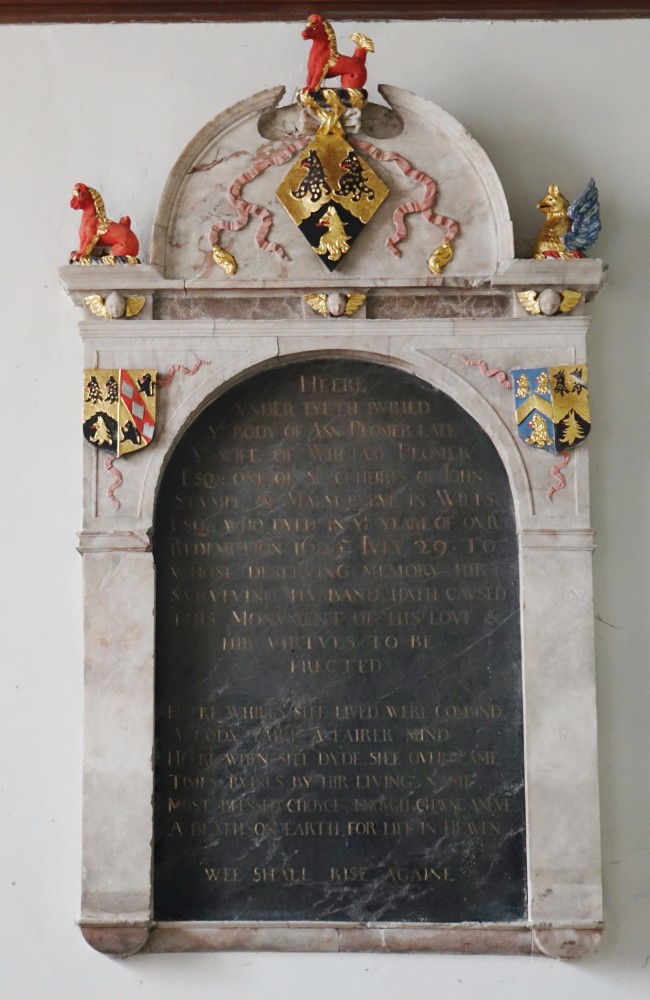 HEERE
VNDER LYETH BVRIED
Yᴱ BODY OF ANN LATE
Yᴱ WIFE OF WILLIAM
ESQ: ONE OF Yᴱ COHEIRES OF IOHN
STAMPE OF IN WILTS.
ESQ. WHO DYED IN Yᴱ YEARE OF OVR
REDEMPTION IVLY 29. TO
WHOSE DESERVING MEMORY HIR
SVRVIVING HVSBAND HATH CAVSED
THIS MONVMENT OF HIS LOVE &
HIR VIRTVES TO BE
ERECTED
HEERE WHILES SHEE LIVED WERE COMBIND
A BODY FAIRE A FAIRER MIND
HEERE WHEN SHEE DYDE SHEE OVERCAME
TIMES RVINES BY HIR LIVING NAME
MOST BLESSED CHOYCE
A DEATH ON EARTH FOR LIFE IN HEAVEN
WEE SHALL RISE AGAINE